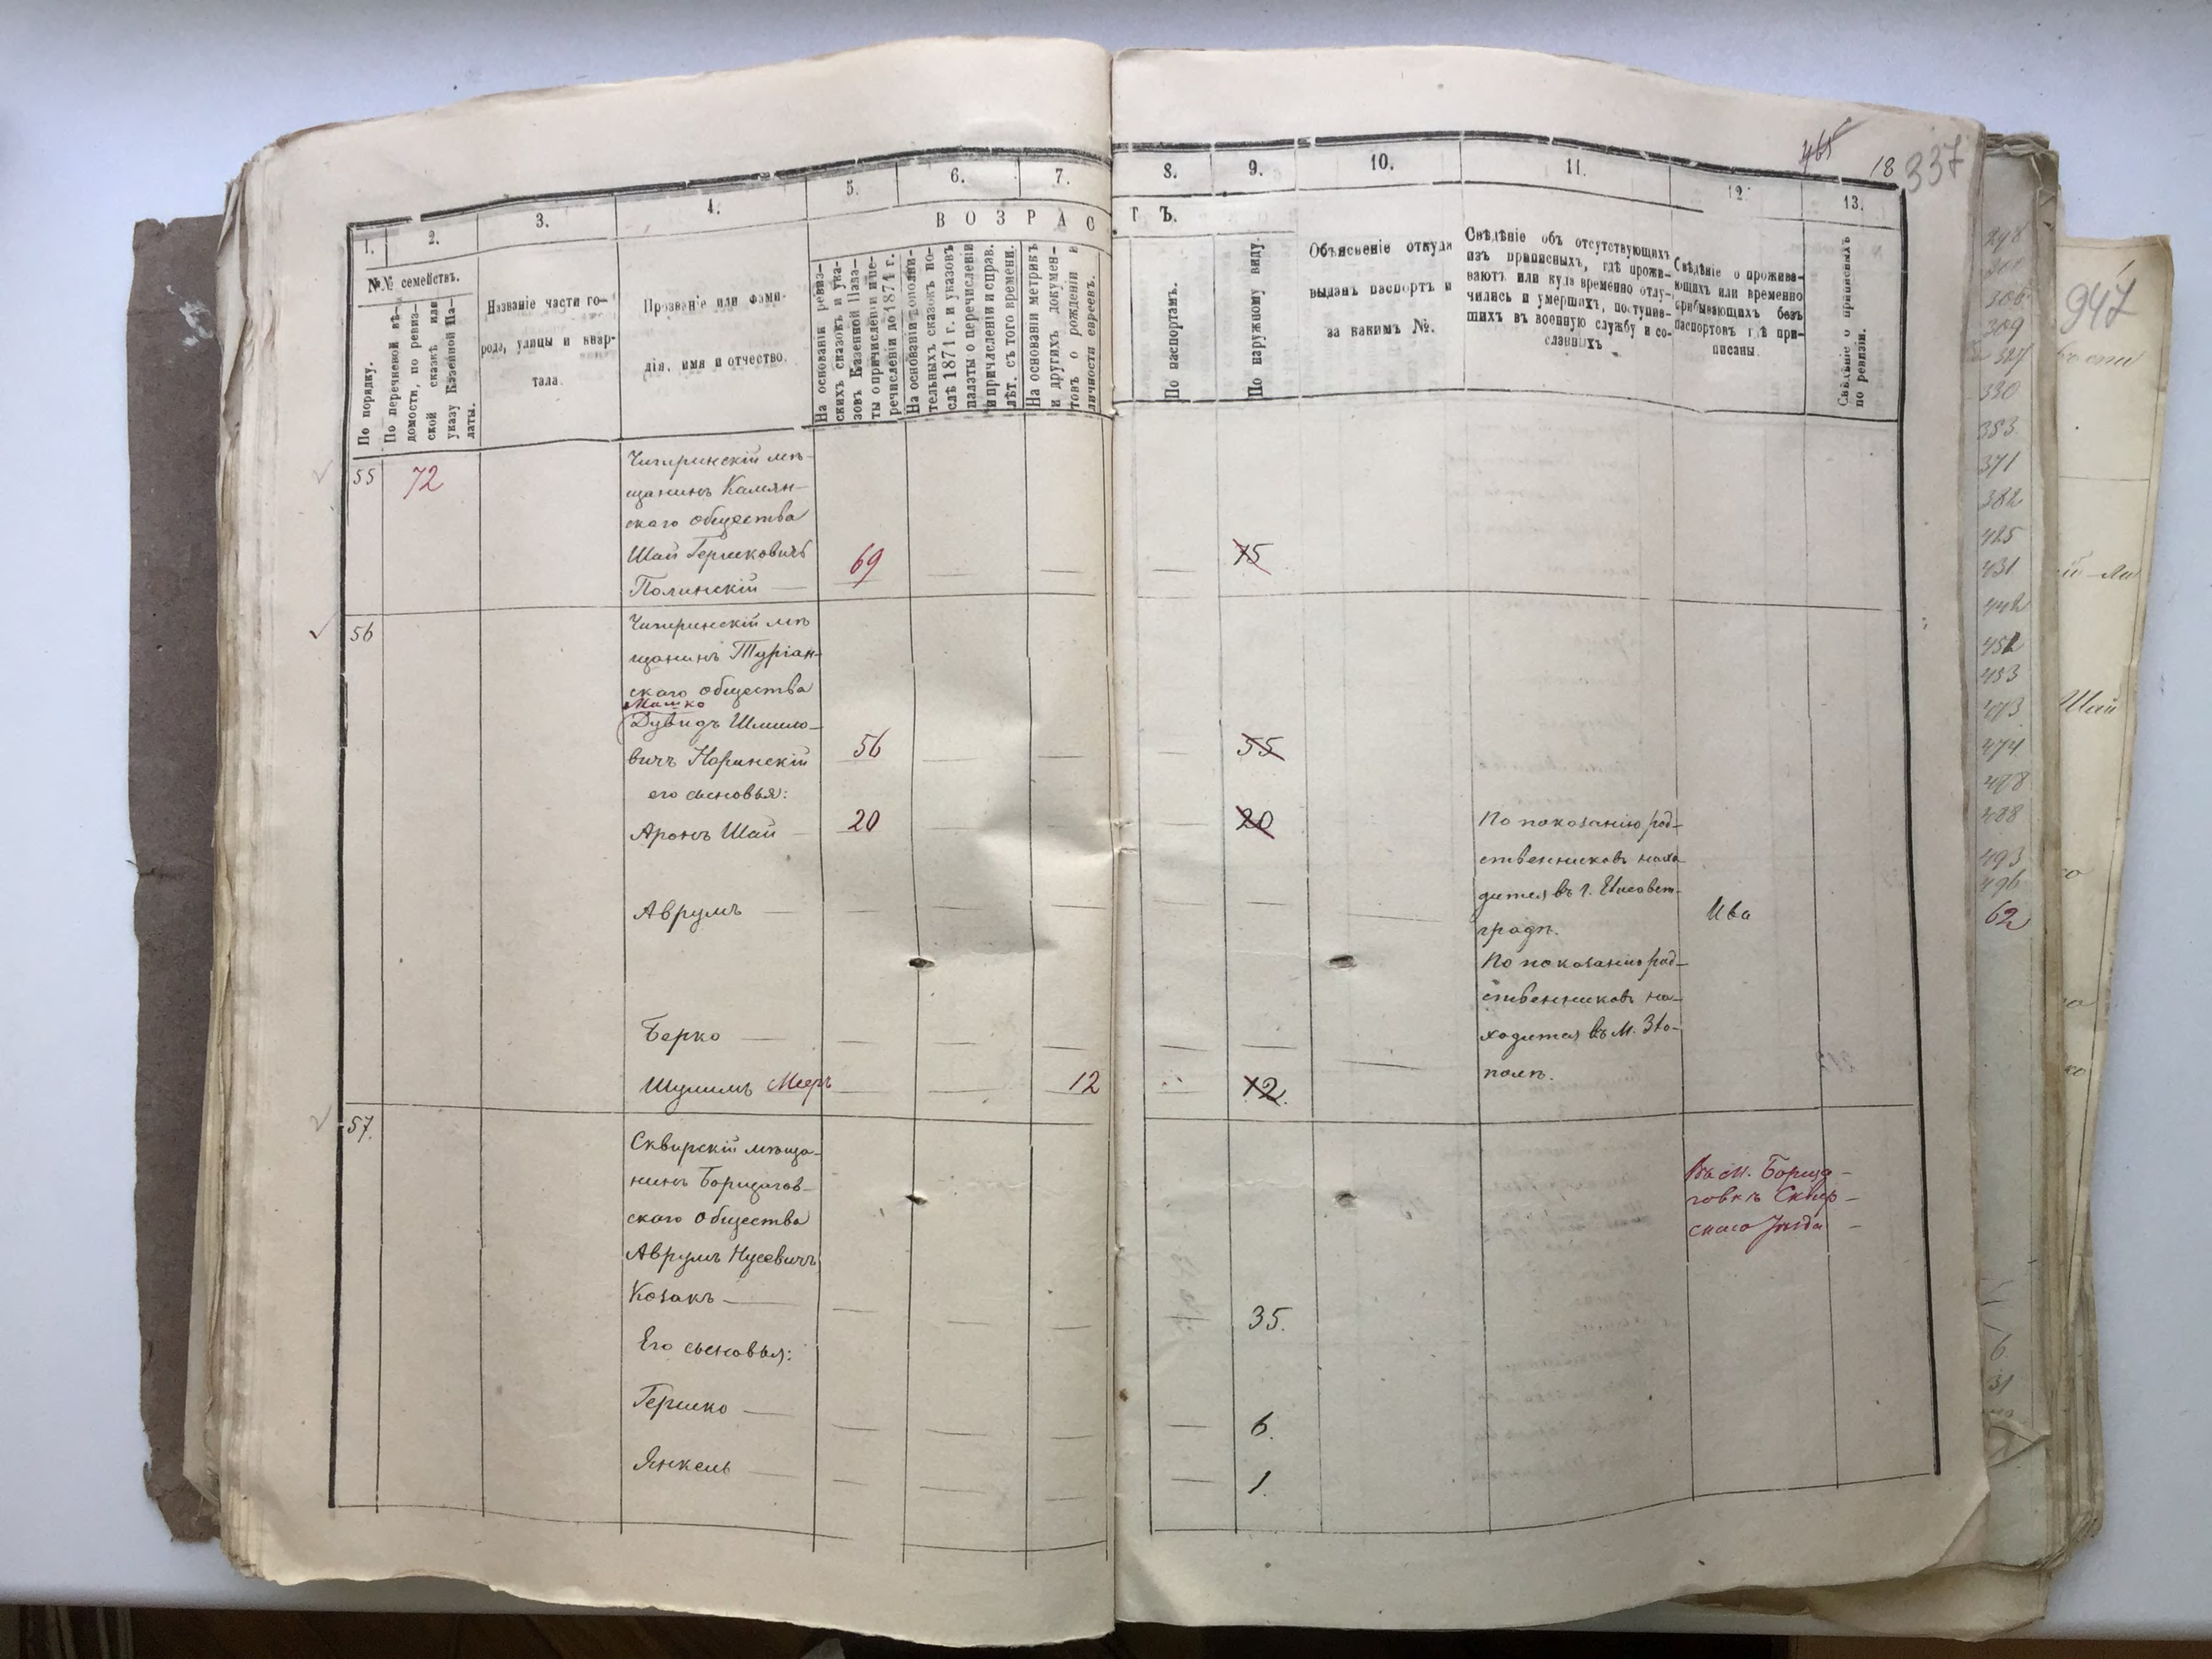 465
18
337
1.
2.
3.
4.
5.
6.
7.
8.
9.
10.
11.
12.
13.
ВОЗРАСТЪ.
№№ семействъ.
По порядку.
По перечневой вѣ-
домости, по ревиз-
ской сказкѣ или
указу Казенной Па-
латы.
Названіе части го-
рода, улицы и квар-
тала.
Прозваніе или фами-
лія, имя и отчество.
На основаніи ревиз-
скихъ сказокъ и ука-
зовъ Казенной Пала-
ты о причисленіи и пе-
речисленіи до 1871 г.
На основаніи дополни-
тельныхъ сказокъ по-
слѣ 1871 г. и указовъ
палаты о перечисленіи
и причисленіи и справ.
лѣт. съ того времени.
На основаніи метрикъ
и другихъ докумен-
товъ о рожденіи и
личности евреевъ.
По паспортамъ.
По наружному виду.
Объясненіе откуда
выданъ паспортъ и
за какимъ №.
Свѣдѣніе объ отсутствующихъ
изъ приписныхъ, гдѣ прожи-
ваютъ или куда временно отлу-
чились и умершихъ, поступив-
шихъ въ военную службу и со-
сланныхъ
Свѣдѣніе о прожива-
ющихъ или временно
прибывающихъ безъ
паспортовъ гдѣ при-
писаны.
Свѣдѣніе о приписныхъ
по ревизіи.
55 72 Чигиринскій мѣ-
щанинъ Камян-
скаго общества
Шай Гершковичъ 69 75
Полинскій
56 Чигиринскій мѣ
щанинъ Туріан-
скаго общества
Машко
Дувидъ Шмило-
вичъ Норинскій 56 55
его сыновья:
Аронъ Шай 20 20 По показанію род-
ственниковъ нахо
дится въ г. Елисовет-
градѣ.
Аврумъ
По показанію род-
ственниковъ на-
ходится въ м. Зла-
полѣ.
Берко
Шулимъ Меер 12 12
57. Сквирскій мѣща-
нинъ Борщагов-
скаго общества
Въ м. Борща-
говкѣ Сквир-
скаго Уѣзда
Аврумъ Нусевичъ
Козакъ 35.
Его сыновья:
Гершко 6.
Янкель 1.
947
330
353
371
382
425
431
453
474
488
493
496
62
Шай
6
31